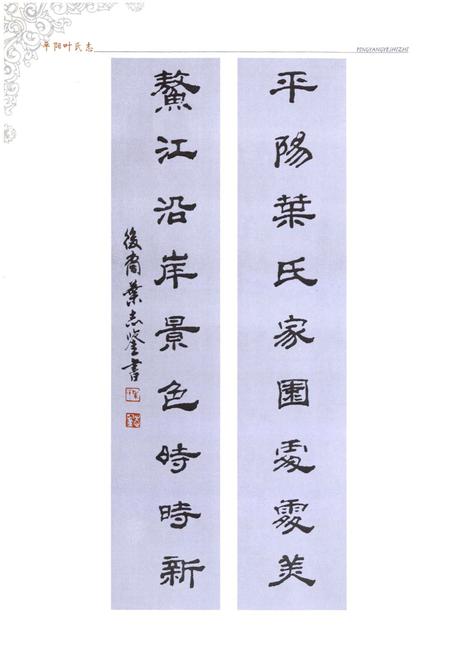 平阳叶氏志
PINGYANGYESHIZHI
平陽葉氏家園處處美
鰲江沿岸景色時時新
後裔葉志鋻書